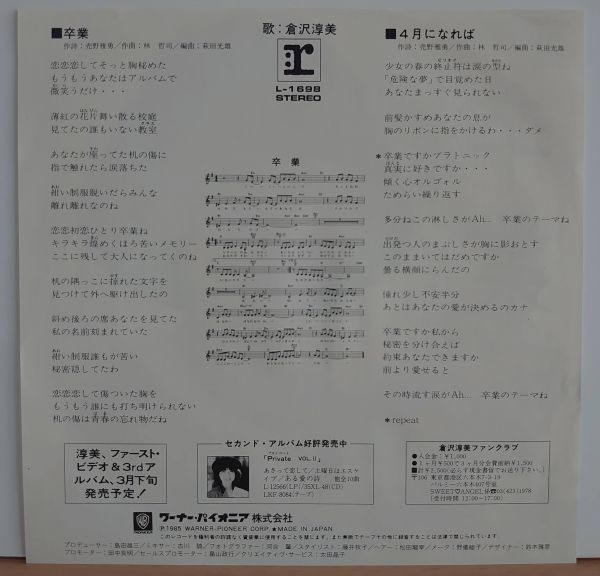 ■卒業
作詩：売野雅勇／作曲：林　哲司／編曲：萩田光雄
恋恋恋してそっと胸秘めた
もうもうあなたはアルバムで
微笑うだけ・・・
薄紅の花片舞い散る校庭
見てたの誰もいない教室
あなたが座ってた机の傷に
指で触れたら涙落ちた
紺い制服脱いだらみんな
離れ離れなのね
恋恋初恋ひとり卒業ね
キラキラ煌めくほろ苦いメモリー
ここに残して大人になってくのね
机の隅っこに掠れた文字を
見つけて外へ駆け出したの
斜め後ろの席あなたを見てた
私の名前刻まれていた
紺い制服誰もが苦い
秘密隠してたわ
恋恋恋して傷ついた胸を
もうもう誰にも打ち明けられない
机の傷は青春の忘れ物だね
歌：倉沢淳美
r
L-1698
STEREO
卒業
■4月になれば
作詩：売野雅勇／作曲：林　哲司／編曲：萩田光雄
少女の春の終止符は涙の型ね
「危険な夢」で目覚めた日
あなたまっすぐ見られない
前髪かすめあなたの息が
胸のリボンに指をかけるわ・・・ダメ
＊卒業ですかプラトニック
真実に好きですか・・・
傾く心オルゴォル
ためらい繰り返す
多分ねこの淋しさがAh…　卒業のテーマね
出発つ人のまぶしさが胸に影おとす
このままいてはだめですか
曇る横顔にらんだの
憧れ少し不安半分
あとはあなたの愛が決めるのカナ
卒業ですか私から
秘密を分け合えば
約束あなたできますか
前より愛せると
その時流す涙がAh…　卒業のテーマね
＊repeat
淳美、ファースト・
ビデオ＆3rdア
ルバム、3月下旬
発売予定！
セカンド・アルバム好評発売中
「Private VOL.Ⅱ」
あきって恋して／土曜日はエスケ
イプ／ある愛の詩　他全10曲
L-12566(LP)／35XL-48(CD)
LKF-8084(テープ)
倉沢淳美ファンクラブ
●入会金：¥1,000
●1ヶ月¥500で3ヶ月分会費前納¥1,500
■計¥2,500(必ず現金書留でお送り下さい。)
〒106 東京都港区六本木7-3-19
パルミー六本木407号室
SWEET♡ANGEL係☎03(423)1978
(受付時間 12:00～17:00)
ワーナー・パイオニア株式会社
Ⓟ1985 WARNER-PIONEER CORP.★MADE IN JAPAN
このレコードを権利者の許諾なく賃貸業に使用することを禁じます。また無断でテープその他に録音することは法律で禁じられています。